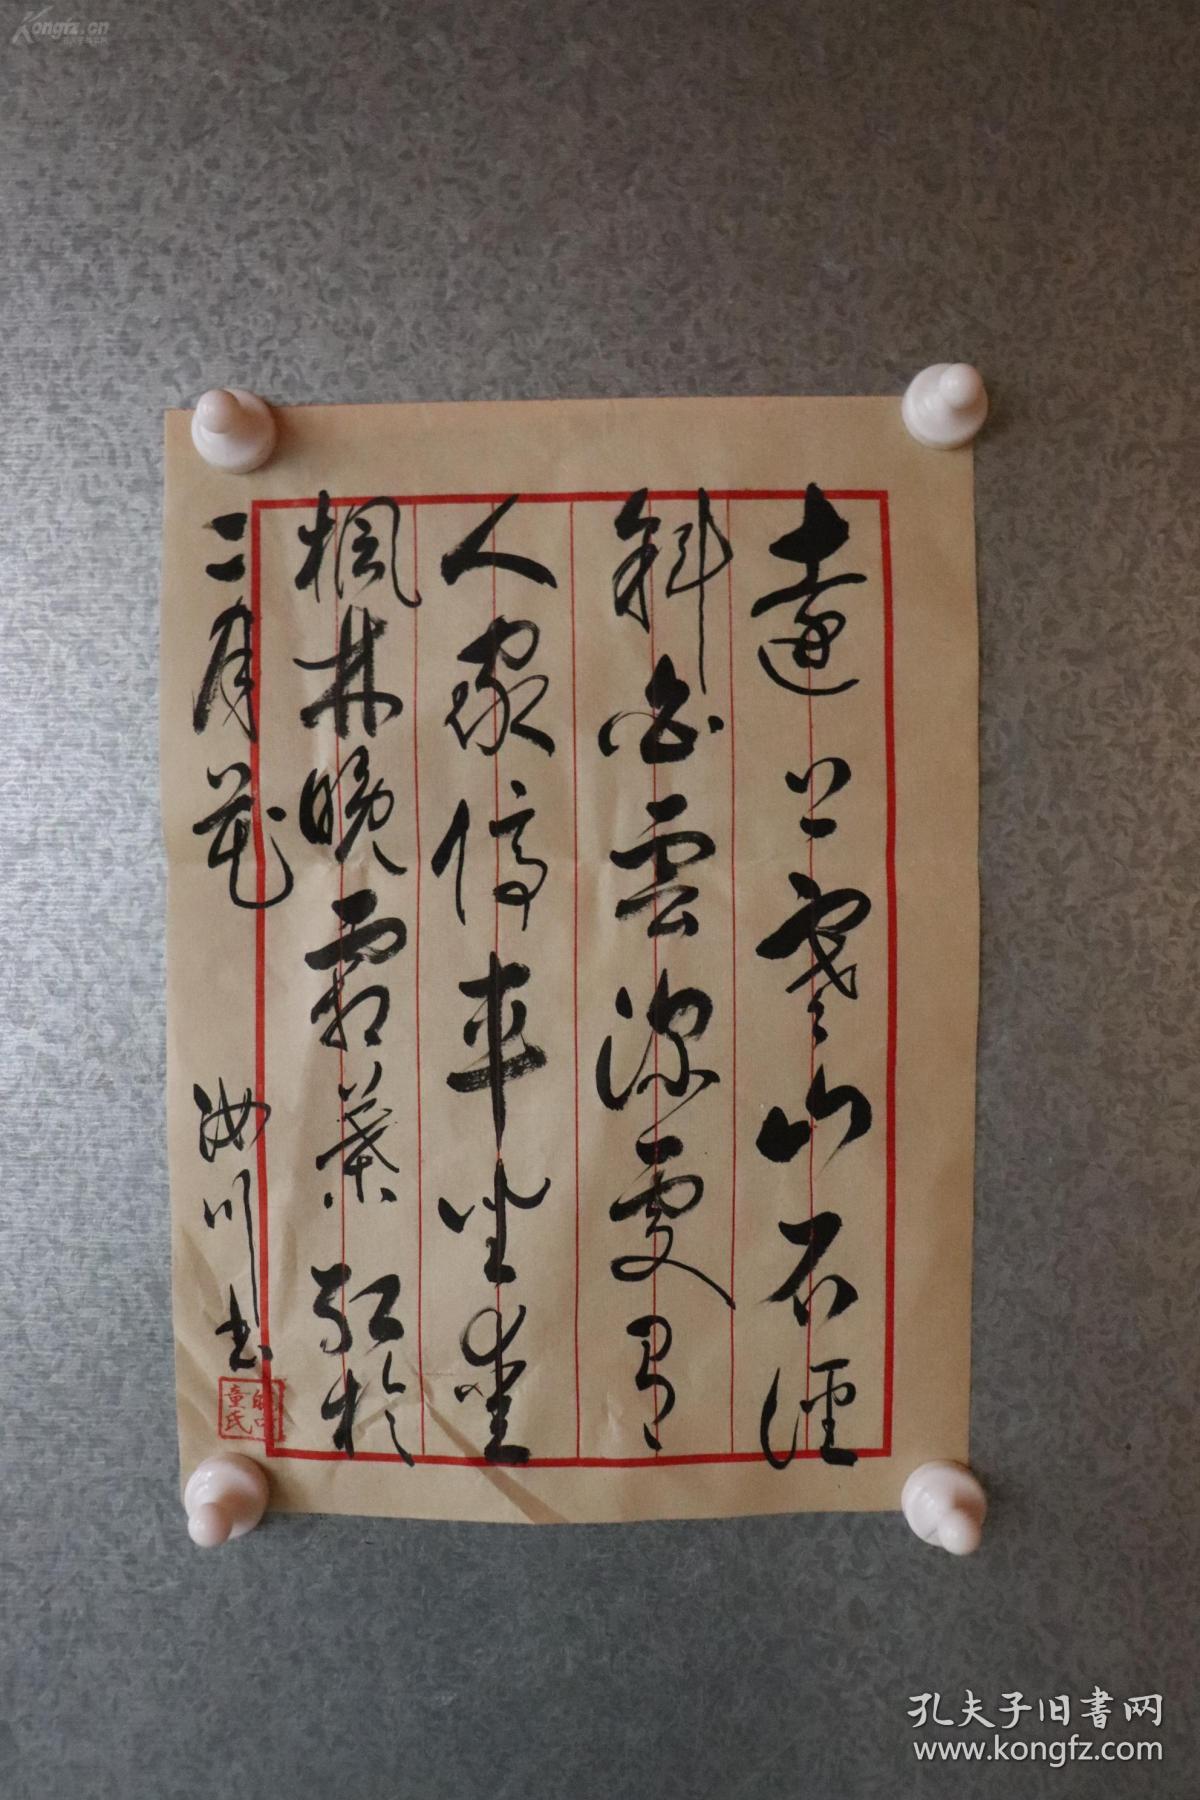 遠上寒山石徑
斜白雲深處有
人家停車坐愛
楓林晚霜葉紅於
二月花
汝川书
童氏
Kongfz.cn
孔夫子旧书网
www.kongfz.com